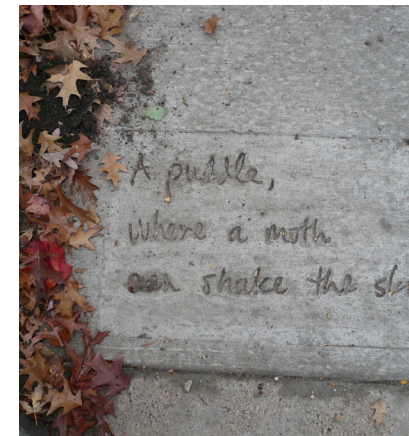 A puddle,
where a moth
can shake the